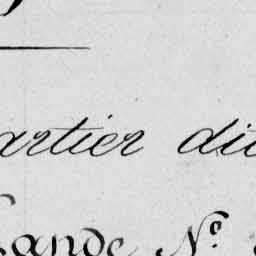 artier dit
ande N.º